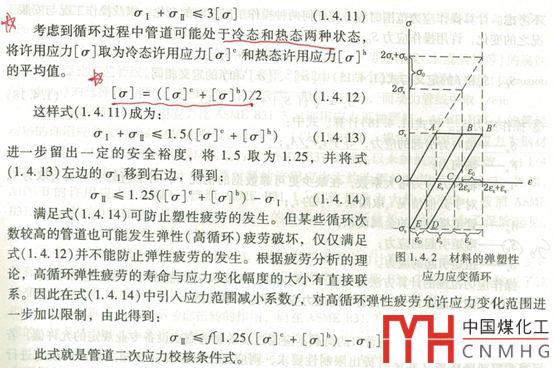 σⅠ + σⅡ ≤ 3[σ] (1.4.11)
考虑到循环过程中管道可能处于冷态和热态两种状态,
将许用应力[σ]取为冷态许用应力[σ]ᶜ和热态许用应力[σ]ʰ
的平均值。
[σ] = ([σ]ᶜ + [σ]ʰ)/2 (1.4.12)
这样式(1.4.11)成为:
σⅠ + σⅡ ≤ 1.5([σ]ᶜ + [σ]ʰ) (1.4.13)
进一步留出一定的安全裕度,将 1.5 取为 1.25,并将式
(1.4.13)左边的 σⅠ 移到右边,得到:
σⅡ ≤ 1.25([σ]ᶜ + [σ]ʰ) − σⅠ (1.4.14)
满足式(1.4.14)可防止塑性疲劳的发生。但某些循环次
数较高的管道也可能发生弹性(高循环)疲劳破坏,仅仅满足
式(1.4.12)并不能防止弹性疲劳的发生。根据疲劳分析的理
论,高循环弹性疲劳的寿命与应力变化幅度的大小有直接联
系。因此在式(1.4.14)中引入应力范围减小系数f,对高循环弹性疲劳允许应力变化范围进
一步加以限制,由此得到:
σⅡ ≤ f[1.25([σ]ᶜ + [σ]ʰ) − σⅠ]
此式就是管道二次应力校核条件式。
σ
2σₛ
σₛ
A B B'
O C ε
εₛ 2εₛ
E D
图 1.4.2 材料的弹塑性
应力应变循环
MH 中国煤化工
CNMHG